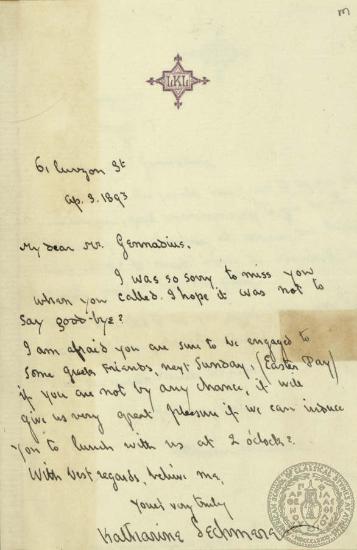 m
LKL
61 Curzon St
Ap. 3. 1893
My dear Mr. Gennadius.
I was so sorry to miss you
when you called. I hope it was not to
say good-bye?
I am afraid you are sure to be engaged to
some Greek friends, next Sunday, (Easter Day)
if you are not by any chance, it will
give us very great pleasure if we can induce
you to lunch with us at 2 o'clock?
With best regards, believe me,
Yours very truly
Katharine Lechmere